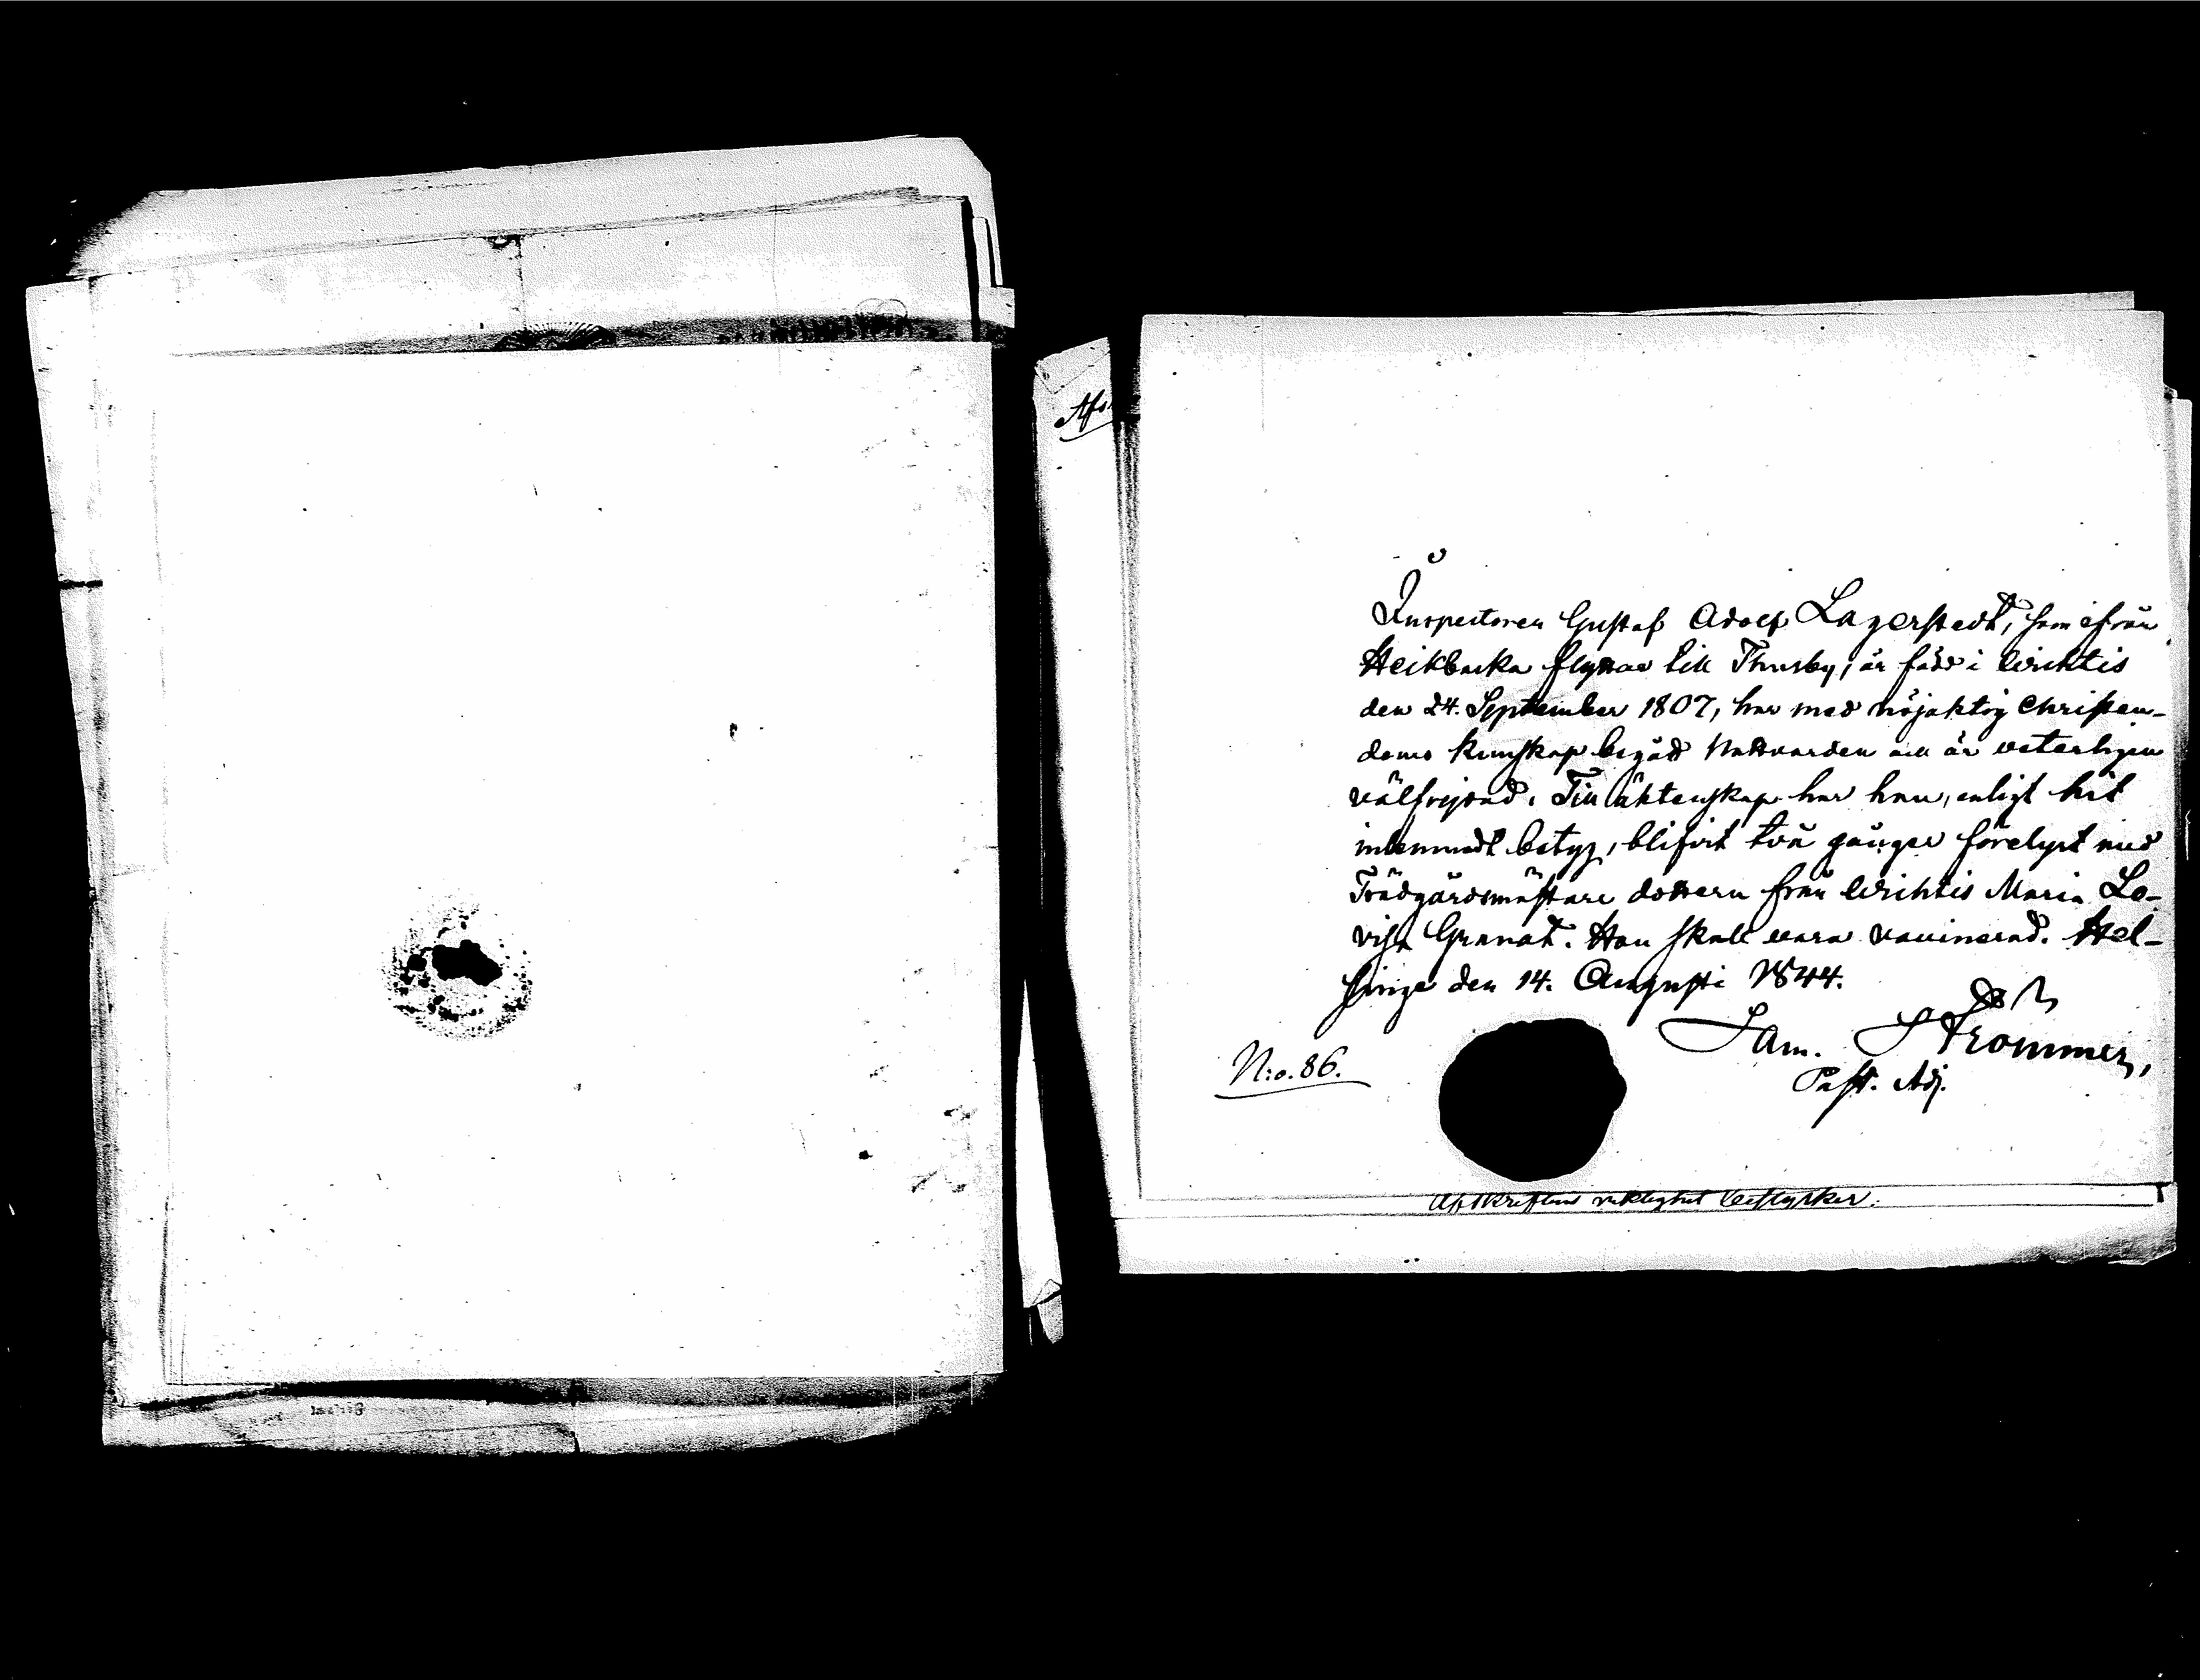 Afs
Inspectoren Gustaf Adolf Lagerstedt, som ifrån
Heikbacka flyttar till Thusby, är född i Wichtis
den 24. September 1807, har med nöjaktig Christen-
doms kunskap begått Nattvarden och är veterligen
välfrejdad. Till äktenskap har han, enligt hit
inlemnadt betyg, blifvit två gånger förelyst med
Trädgårdsmästare dottern från Wichtis Maria Lo-
visa Granat. Han skall vara vaccinerad. Hel-
singe den 14. Augusti 1844.
Sam. Strömmer,
Past. Adj.
N:o. 86.
Afskriftens riktighet bestyrker.